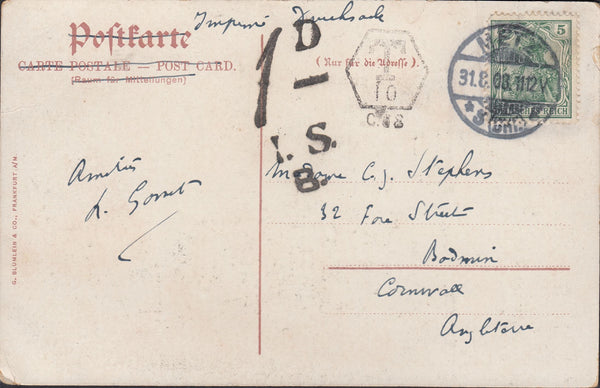 Imprimé Drucksache
Postkarte
CARTE POSTALE — POST CARD.
(Raum für Mitteilungen)
(Nur für die Adresse).
1 D
I.S.
B.
T
10
C.
5
METZ
31.8. 11-12V
DEUTSCHES REICH
Amitiés
C.J. Stephens
32 Fore Street
Bodmin
Cornwall
Angleterre
G. BLÜMLEIN & CO., FRANKFURT A/M.